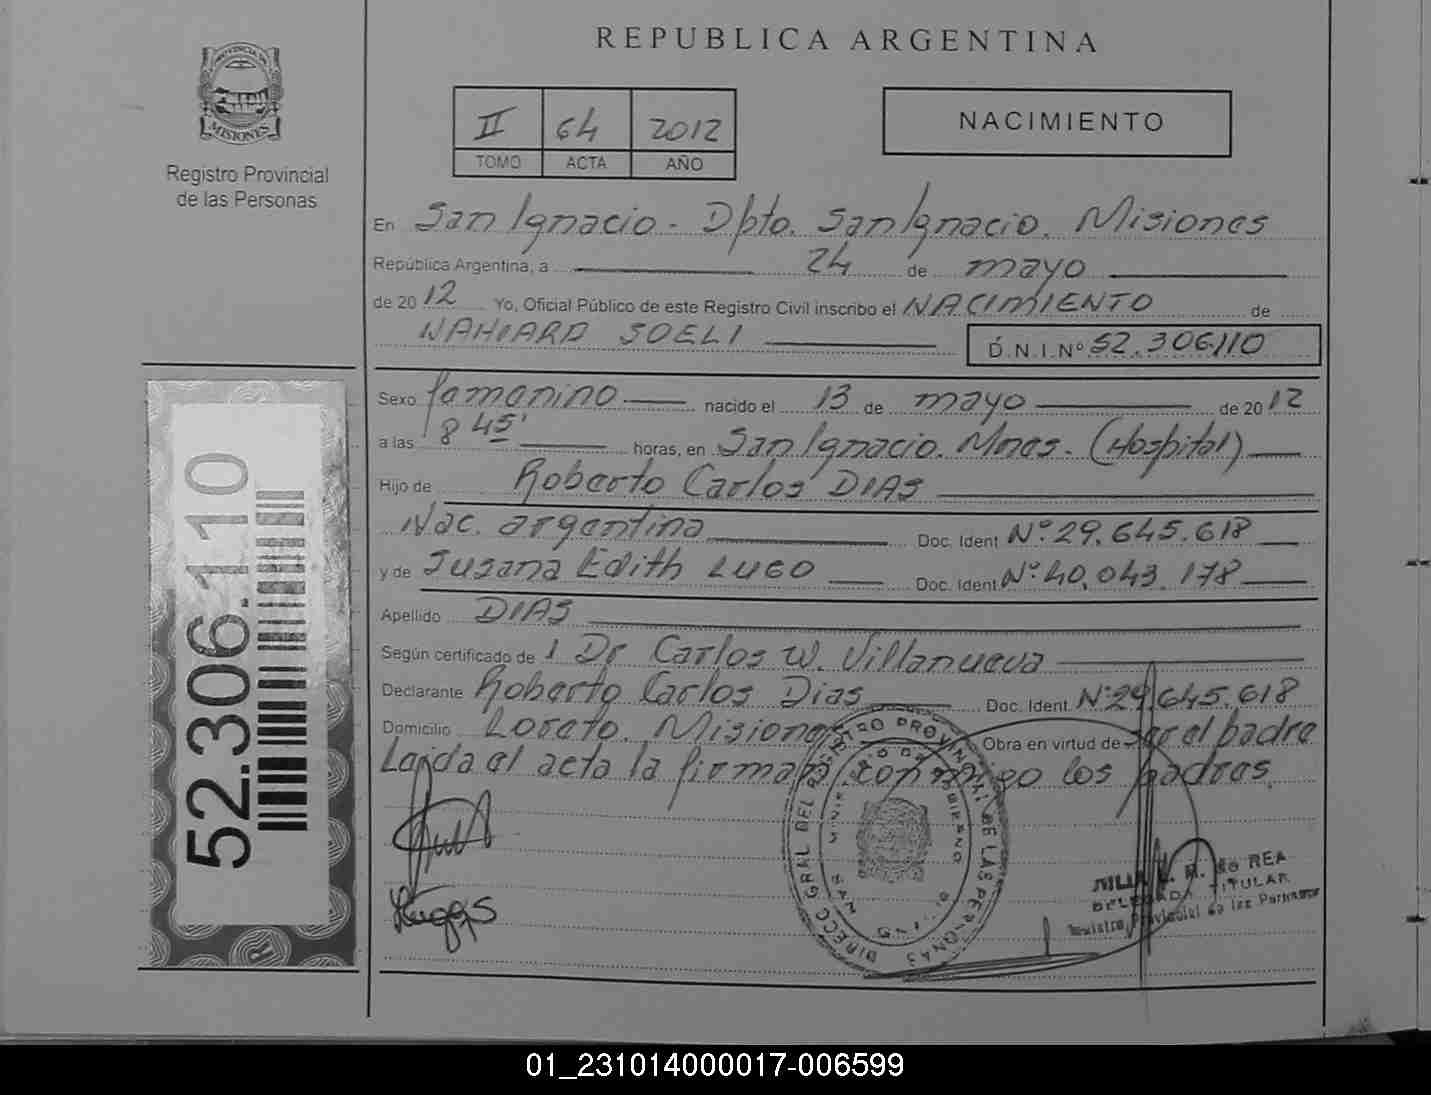 REPUBLICA ARGENTINA
PROVINCIA DE
MISIONES
Registro Provincial
de las Personas
II 64 2012
TOMO ACTA AÑO
NACIMIENTO
En San Ignacio - Dpto. San Ignacio. Misiones
República Argentina, a 24 de mayo
de 2012 Yo, Oficial Público de este Registro Civil inscribo el NACIMIENTO de
SOELI
D.N.I.Nº 52.306.110
Sexo femenino nacido el 13 de mayo de 2012
a las 8 45' horas, en San Ignacio. Mnes. (Hospital)
Hijo de Roberto Carlos DIAS
Nac. argentina Doc. Ident Nº 29.645.618
y de Susana Edith LUGO Doc. Ident. Nº 40.043.178
Apellido DIAS
Según certificado de l Dr Carlos W. Villanueva
Declarante Roberto Carlos Dias Doc. Ident. Nº 29.645.618
Domicilio Loreto. Misiones Obra en virtud de ser el padre
Leida el acta la firman conmigo los padres.
52.306.110
DIRECC GRAL DEL REGISTRO PROVINCIAL DE LAS PERSONAS
MINISTERIO DE GOBIERNO
DE REA
DELEGADA TITULAR
Registro Provincial de las Personas
01_231014000017-006599